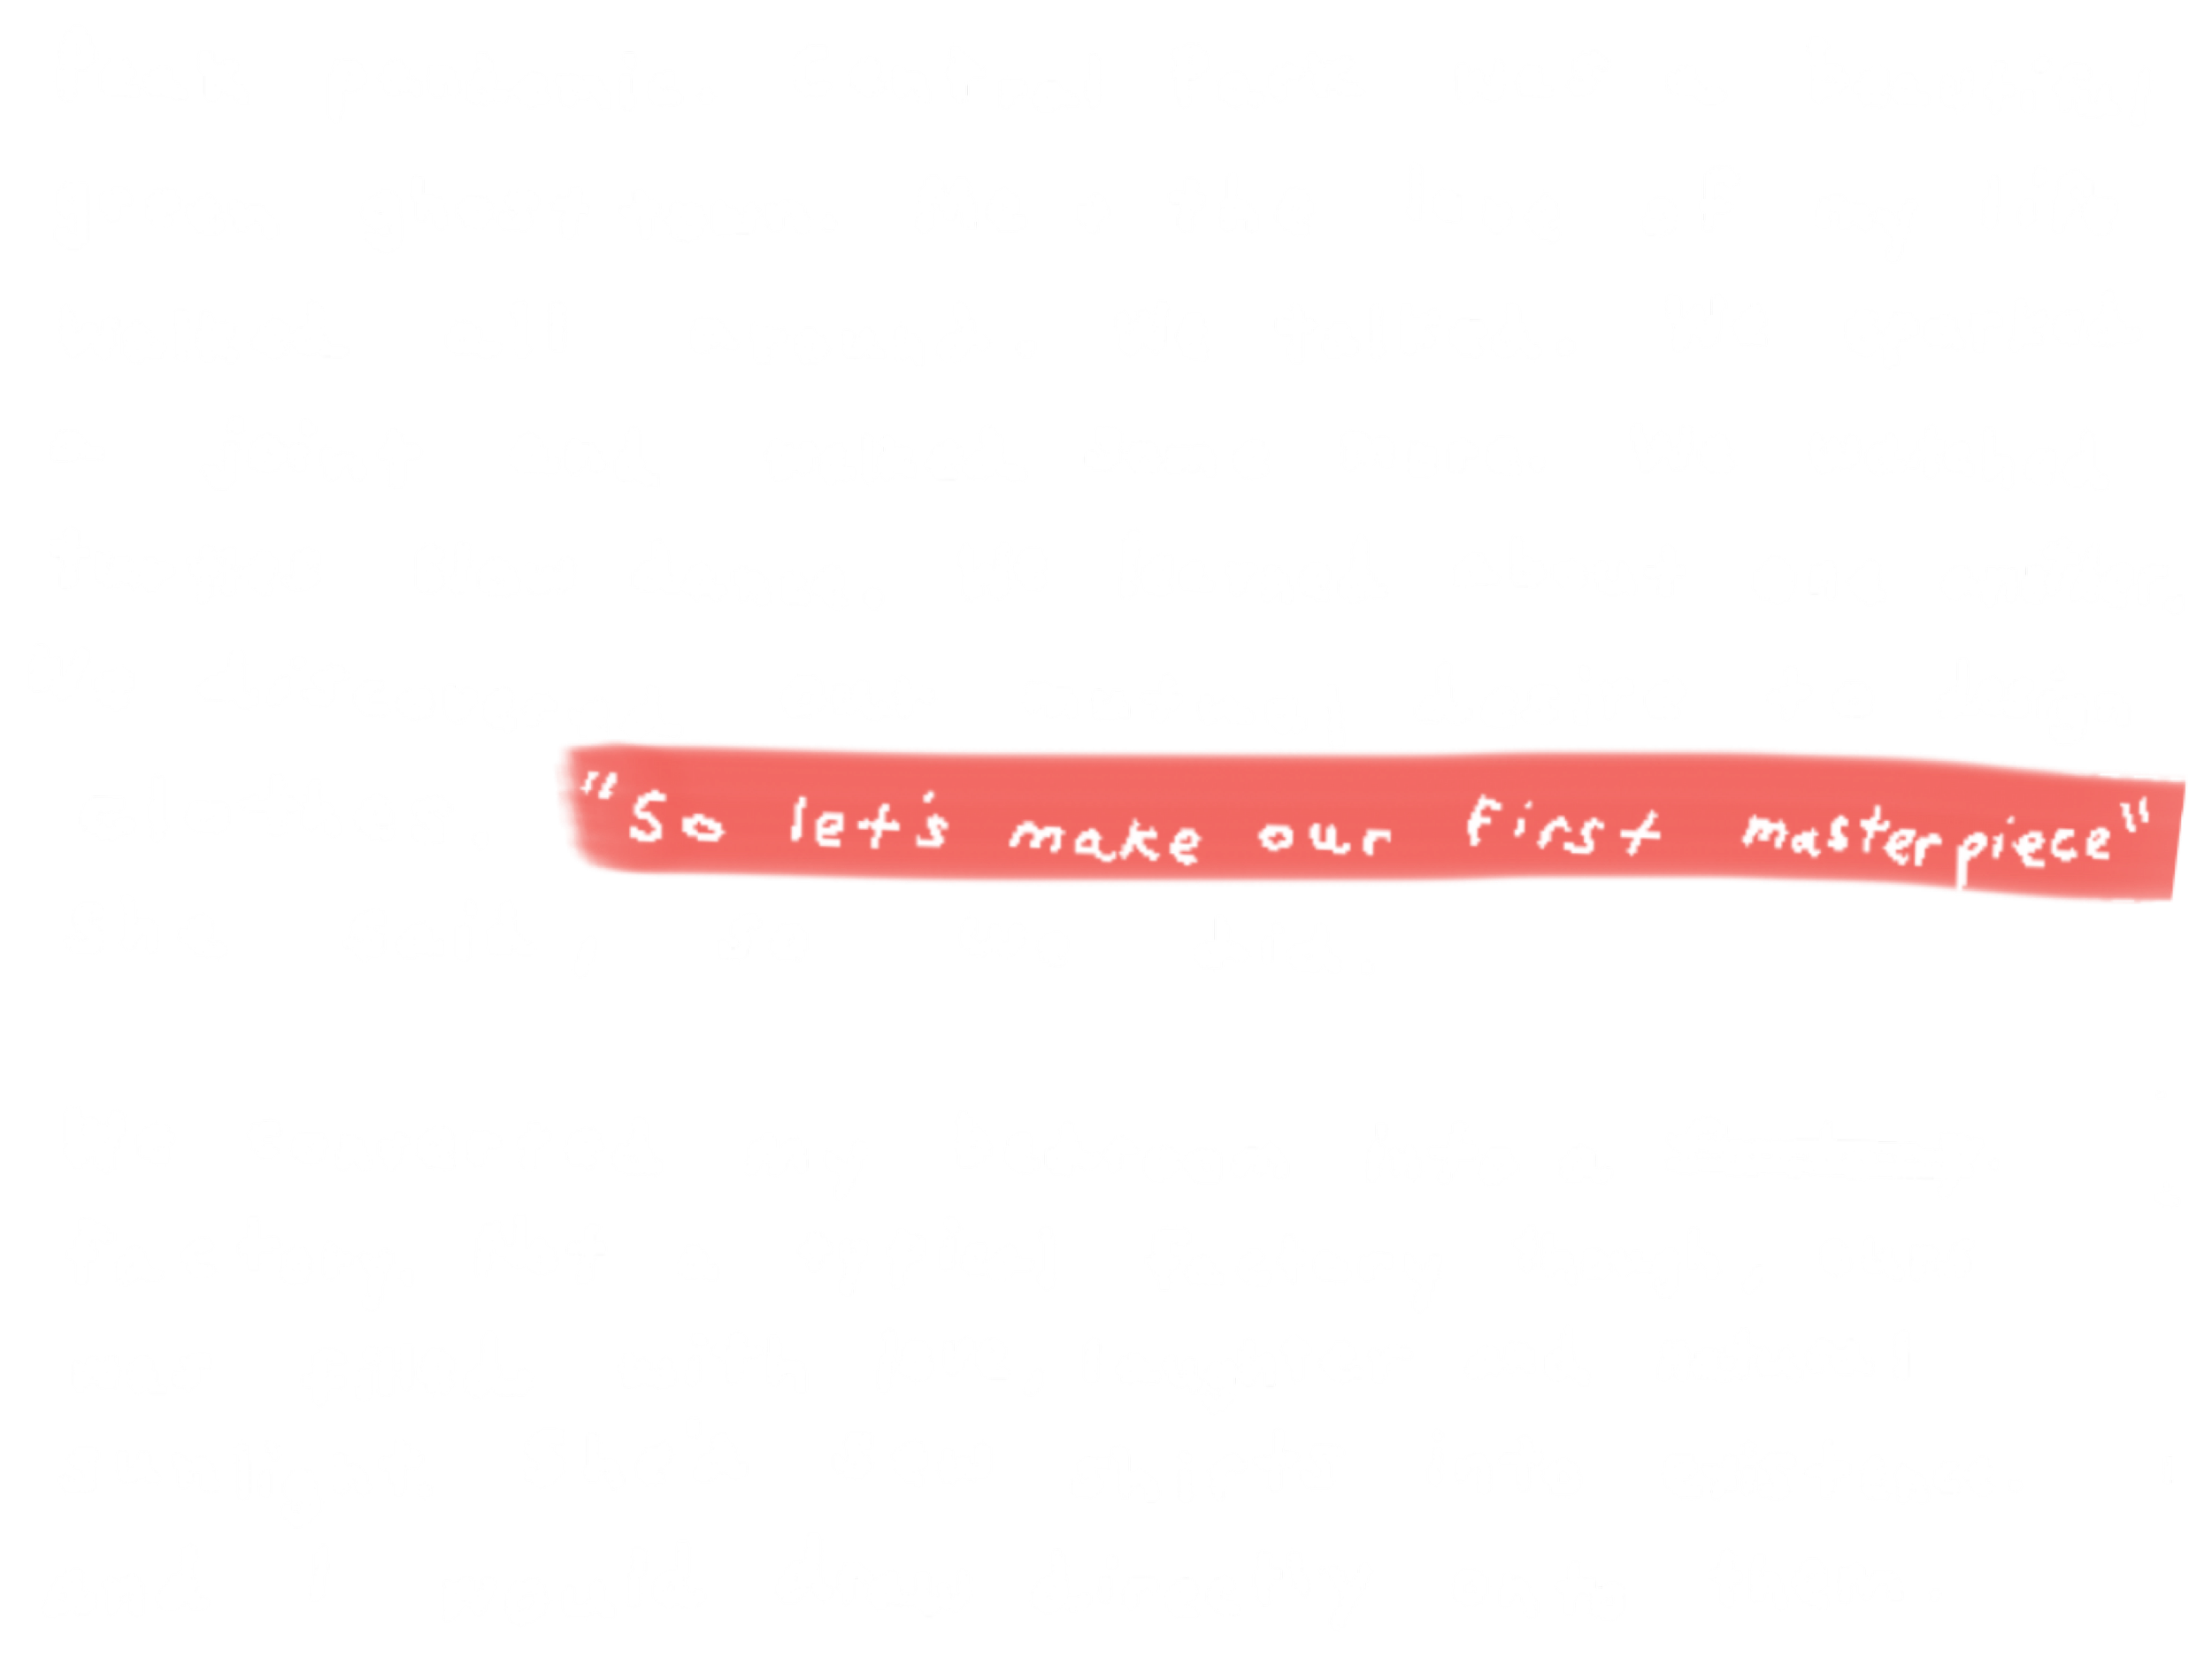 "So let's make our first masterpiece"